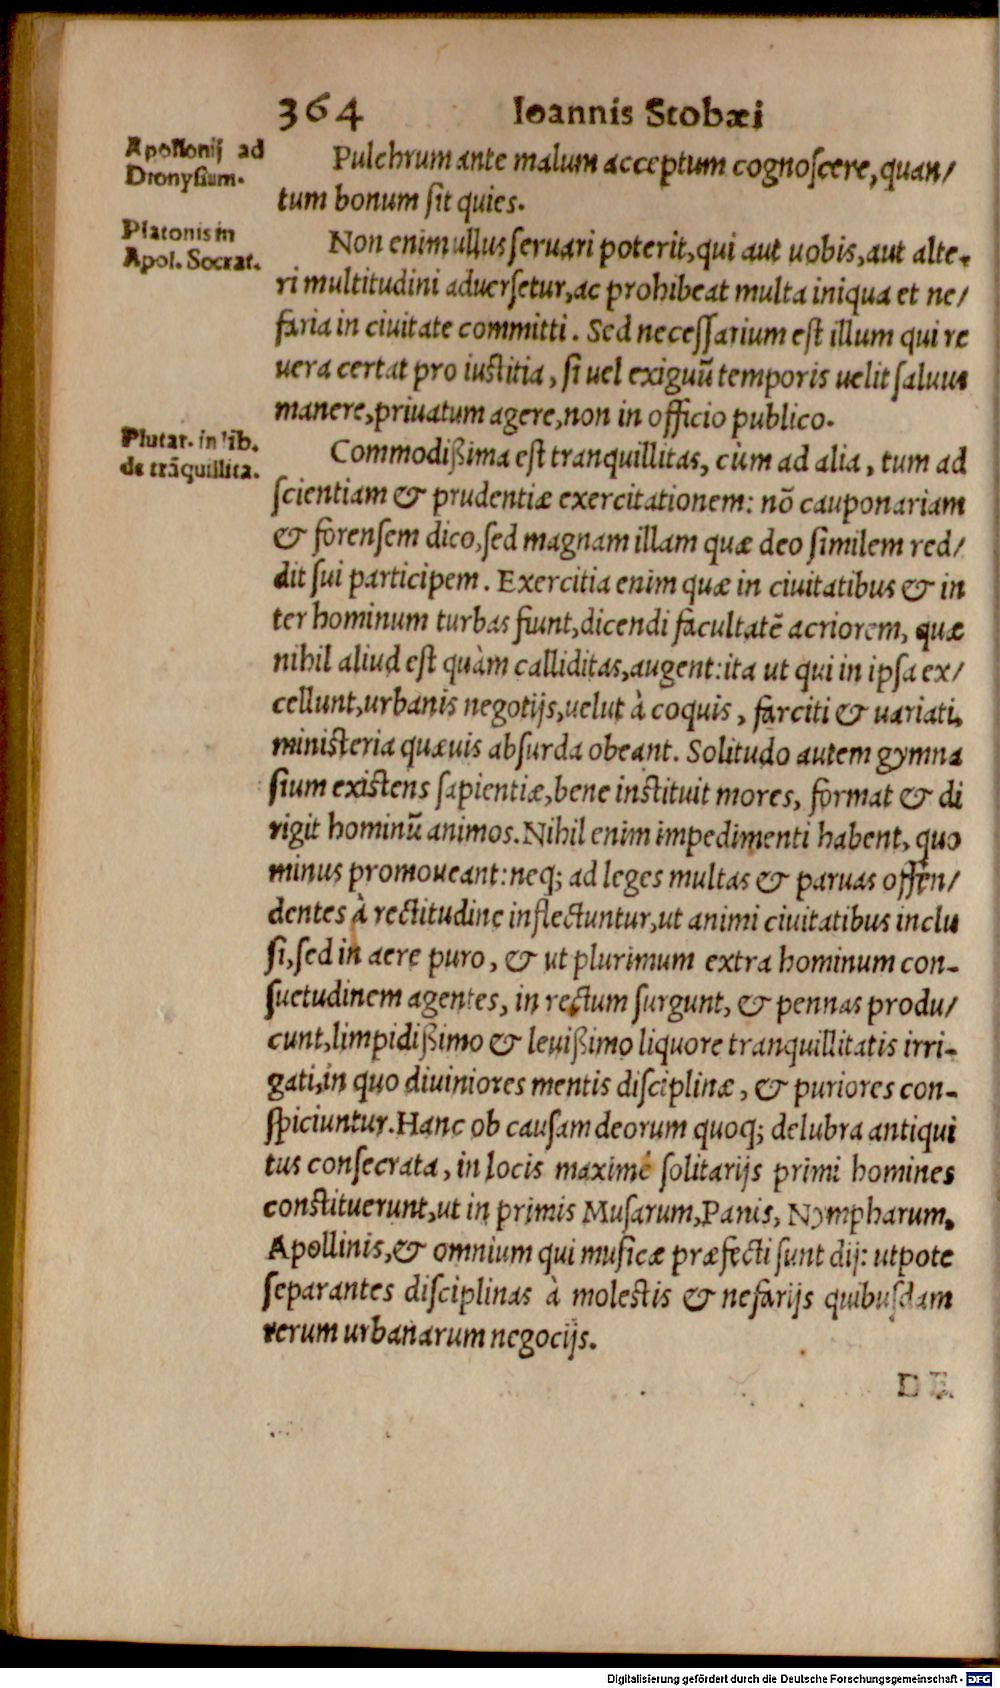 364 Ioannis Stobæi
Apollonij ad
Dionysium.
Pulchrum ante malum acceptum cognoscere, quan/
tum bonum sit quies.
Platonis in
Apol. Socrat.
Non enim ullus seruari poterit, qui aut uobis, aut alte-
ri multitudini aduersetur, ac prohibeat multa iniqua et ne/
faria in ciuitate committi. Sed necessarium est illum qui re
uera certat pro iustitia, si uel exiguū temporis uelit saluus
manere, priuatum agere, non in officio publico.
Plutar. in lib.
de trāquillita.
Commodißima est tranquillitas, cùm ad alia, tum ad
scientiam & prudentiæ exercitationem: nō cauponariam
& forensem dico, sed magnam illam quæ deo similem red/
dit sui participem. Exercitia enim quæ in ciuitatibus & in
ter hominum turbas fiunt, dicendi facultatē acriorem, quæ
nihil aliud est quàm calliditas, augent: ita ut qui in ipsa ex/
cellunt, urbanis negotijs, uelut à coquis, farciti & uariati,
ministeria quæuis absurda obeant. Solitudo autem gymna
sium existens sapientiæ, bene instituit mores, format & di
rigit hominū animos. Nihil enim impedimenti habent, quo
minus promoueant: neq; ad leges multas & paruas offen/
dentes à rectitudine inflectuntur, ut animi ciuitatibus inclu
si, sed in aere puro, & ut plurimum extra hominum con-
suetudinem agentes, in rectum surgunt, & pennas produ/
cunt, limpidißimo & leuißimo liquore tranquillitatis irri-
gati, in quo diuiniores mentis disciplinæ, & puriores con-
spiciuntur. Hanc ob causam deorum quoq; delubra antiqui
tus consecrata, in locis maximè solitarijs primi homines
constituerunt, ut in primis Musarum, Panis, Nympharum,
Apollinis, & omnium qui musicæ præfecti sunt dij: utpote
separantes disciplinas à molestis & nefarijs quibusdam
rerum urbanarum negocijs.
DE
Digitalisierung gefördert durch die Deutsche Forschungsgemeinschaft - DFG